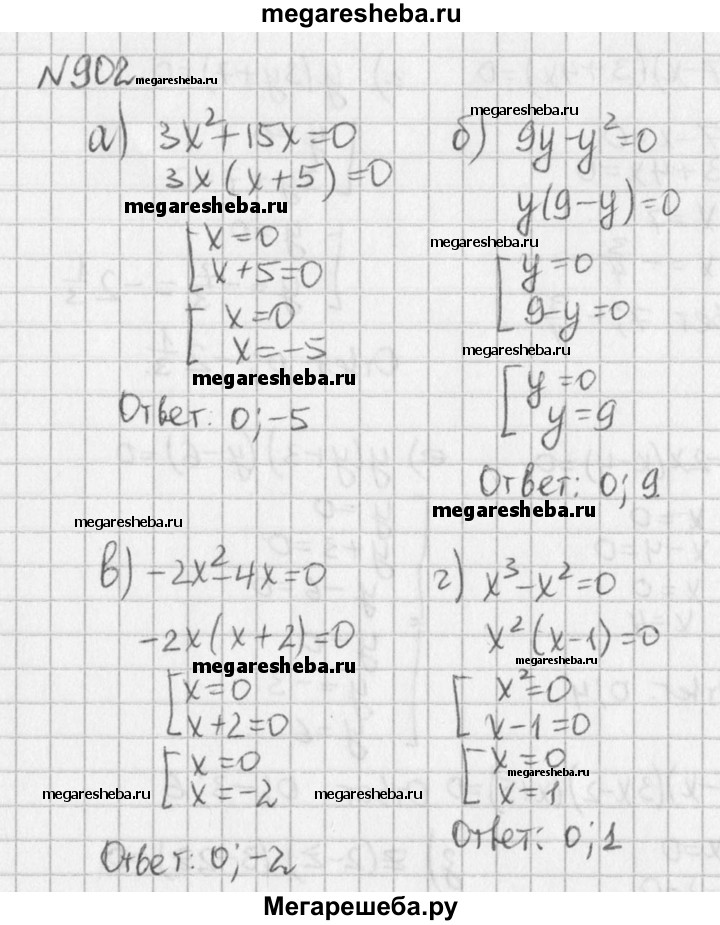 megaresheba.ru
N902 megaresheba.ru
а) 3x²+15x=0
3x(x+5)=0
megaresheba.ru
[x=0
x+5=0
[x=0
x=-5
megaresheba.ru
Ответ: 0;-5
megaresheba.ru
б) 9y-y²=0
y(9-y)=0
megaresheba.ru
[y=0
9-y=0
megaresheba.ru
[y=0
y=9
Ответ: 0; 9
megaresheba.ru
megaresheba.ru
в) -2x²-4x=0
-2x(x+2)=0
megaresheba.ru
[x=0
x+2=0
[x=0
x=-2
megaresheba.ru megaresheba.ru
Ответ: 0;-2
г) x³-x²=0
x²(x-1)=0
megaresheba.ru
[x²=0
x-1=0
[x=0
megaresheba.ru
x=1
Ответ: 0;1
Мегарешеба.ру